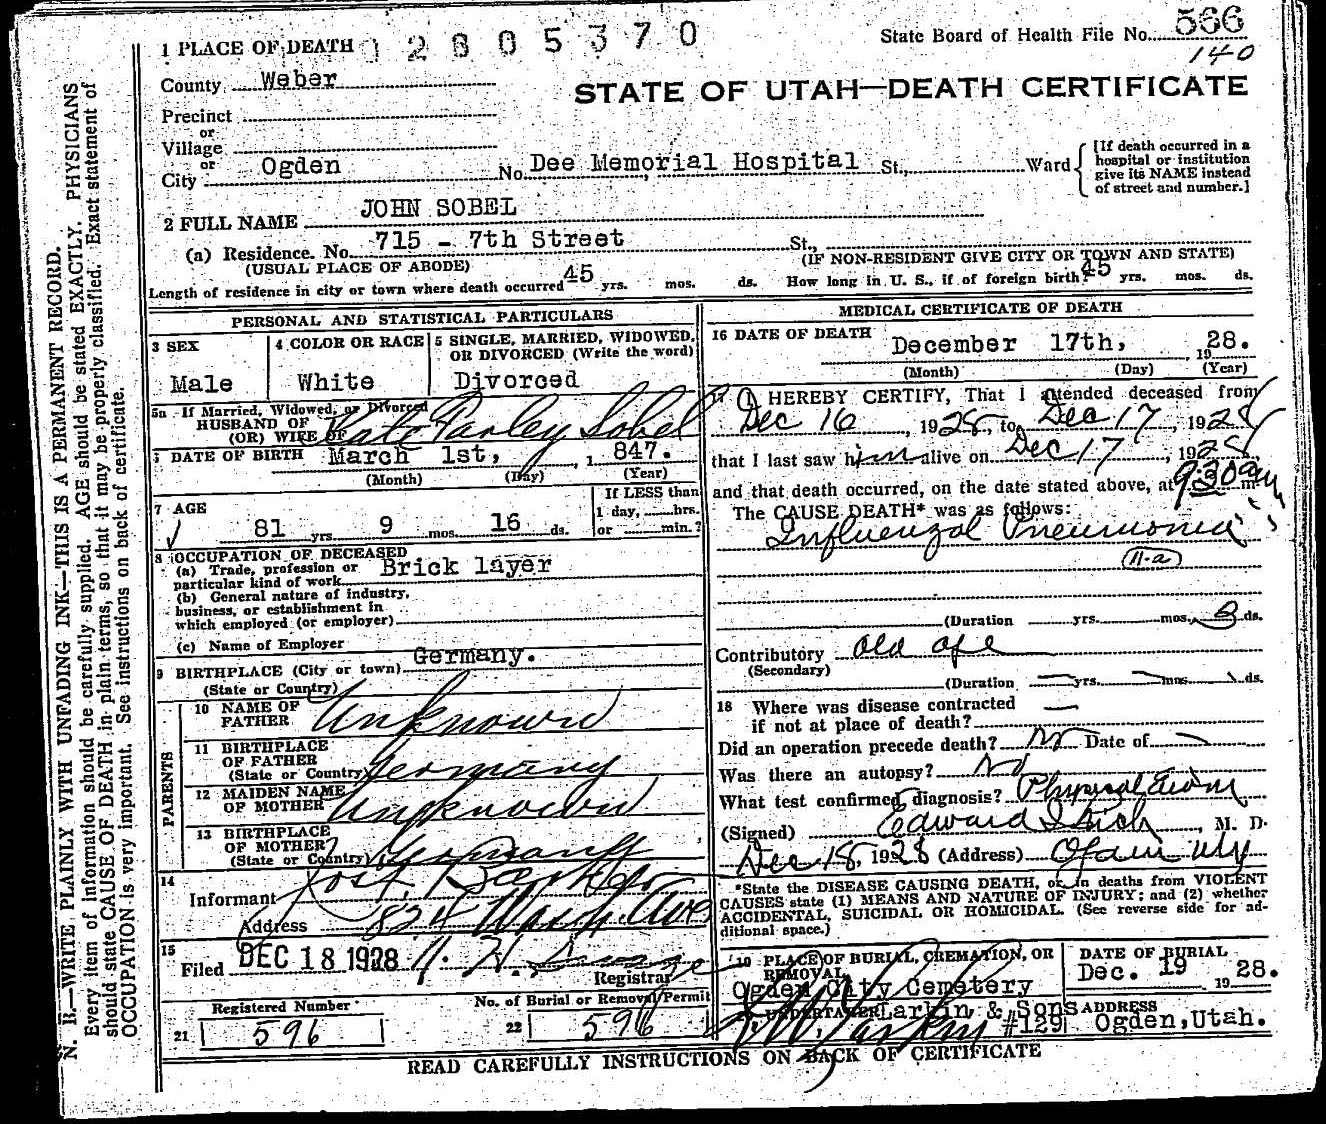 1 PLACE OF DEATH
2805370
State Board of Health File No. 566
140
County Weber
STATE OF UTAH—DEATH CERTIFICATE
Precinct
or
Village
or
City Ogden No. Dee Memorial Hospital St., Ward
[If death occurred in a
hospital or institution
give its NAME instead
of street and number.]
2 FULL NAME JOHN SOBEL
(a) Residence. No. 715 - 7th Street St.,
(USUAL PLACE OF ABODE) (IF NON-RESIDENT GIVE CITY OR TOWN AND STATE)
Length of residence in city or town where death occurred 45 yrs. mos. ds. How long in U. S., if of foreign birth? 45 yrs. mos. ds.
PERSONAL AND STATISTICAL PARTICULARS
3 SEX
Male
4 COLOR OR RACE
White
5 SINGLE, MARRIED, WIDOWED,
OR DIVORCED (Write the word)
Divorced
5a If Married, Widowed, or Divorced
HUSBAND OF
(OR) WIFE OF Kate Farley Sobel
DATE OF BIRTH March 1st, 1847.
(Month) (Day) (Year)
7 AGE
81 yrs. 9 mos. 16 ds.
If LESS than
1 day, hrs.
or min.?
8 OCCUPATION OF DECEASED
(a) Trade, profession or
particular kind of work Brick layer
(b) General nature of industry,
business, or establishment in
which employed (or employer)
(c) Name of Employer
9 BIRTHPLACE (City or town) Germany.
(State or Country)
PARENTS
10 NAME OF
FATHER Unknown
11 BIRTHPLACE
OF FATHER
(State or Country) Germany
12 MAIDEN NAME
OF MOTHER Unknown
13 BIRTHPLACE
OF MOTHER
(State or Country) Germany
14
Informant
Address 824 Wash. Ave
15
Filed DEC 18 1928
Registrar
Registered Number
21 596
No. of Burial or Removal Permit
22 596
MEDICAL CERTIFICATE OF DEATH
16 DATE OF DEATH
December 17th, 1928.
(Month) (Day) (Year)
17 I HEREBY CERTIFY, That I attended deceased from
Dec 16, 1928, to Dec 17, 1928
that I last saw him alive on Dec 17, 1928
and that death occurred, on the date stated above, at 9:30 am
The CAUSE DEATH* was as follows:
Influenzal Pneumonia
(11-a)
(Duration yrs. mos. 3 ds.
Contributory old age
(Secondary)
(Duration yrs. mos. ds.
18 Where was disease contracted
if not at place of death?
Did an operation precede death? No Date of
Was there an autopsy? No
What test confirmed diagnosis? Physical Exam
(Signed) Edward I Rich, M. D.
Dec 18, 1928 (Address) Ogden Utah
*State the DISEASE CAUSING DEATH, or, in deaths from VIOLENT
CAUSES state (1) MEANS AND NATURE OF INJURY; and (2) whether
ACCIDENTAL, SUICIDAL OR HOMICIDAL. (See reverse side for ad-
ditional space.)
19 PLACE OF BURIAL, CREMATION, OR
REMOVAL
Ogden City Cemetery
DATE OF BURIAL
Dec. 19 1928.
UNDERTAKER Larkin & Sons
#129
ADDRESS
Ogden, Utah.
READ CAREFULLY INSTRUCTIONS ON BACK OF CERTIFICATE
N. B.—WRITE PLAINLY WITH UNFADING INK—THIS IS A PERMANENT RECORD.
Every item of information should be carefully supplied. AGE should be stated EXACTLY. PHYSICIANS
should state CAUSE OF DEATH in plain terms, so that it may be properly classified. Exact statement of
OCCUPATION is very important. See instructions on back of certificate.